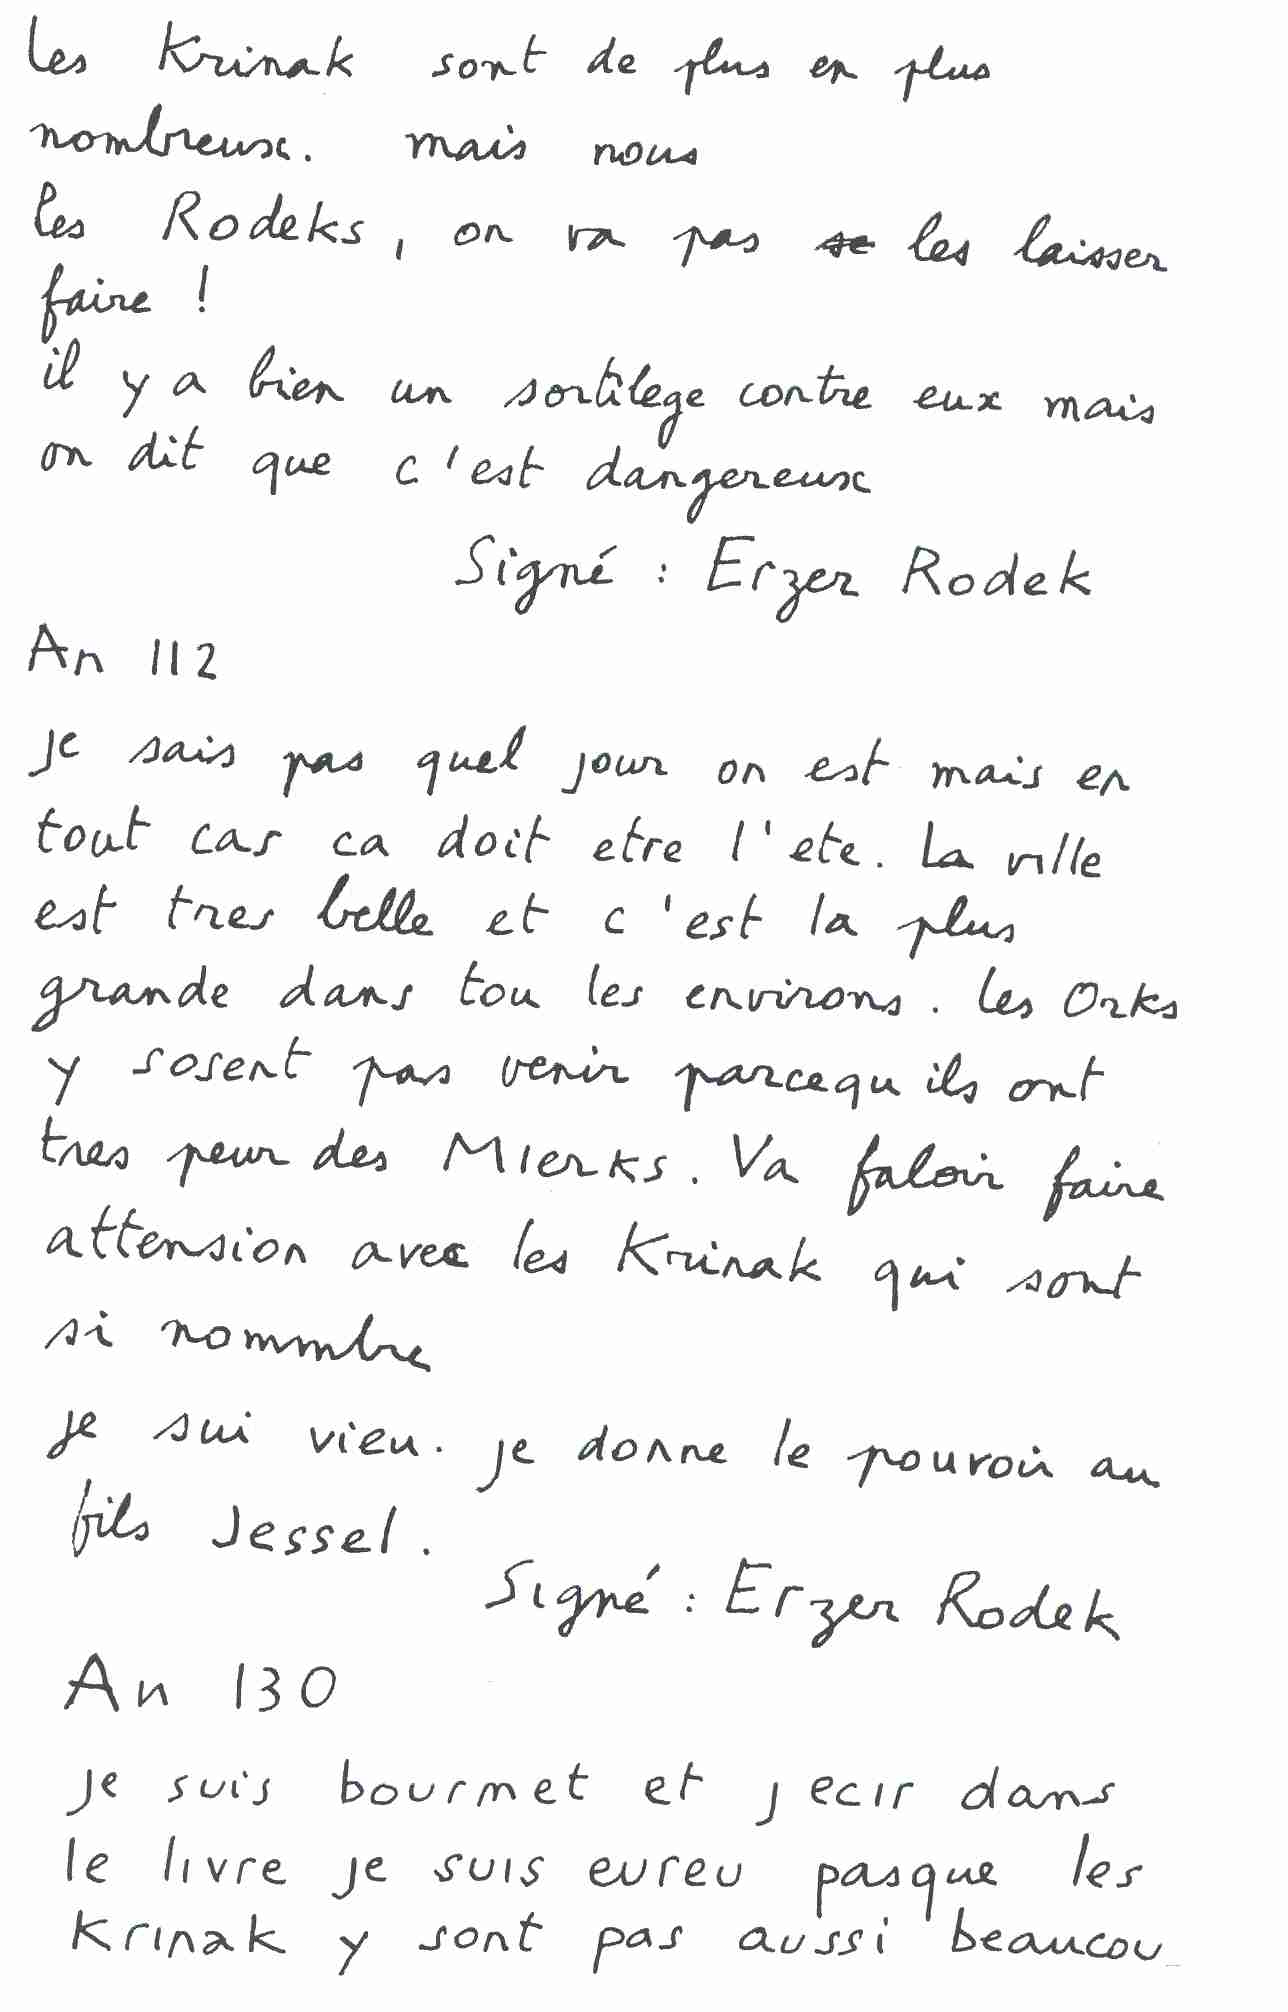 les Krinak sont de plus en plus
nombreux. mais nous
les Rodeks, on va pas se les laisser
faire !
il y a bien un sortilege contre eux mais
on dit que c'est dangereux
Signé : Erzer Rodek
An 112
je sais pas quel jour on est mais en
tout cas ca doit etre l'ete. La ville
est tres belle et c'est la plus
grande dans tou les environs. les Orks
y sosent pas venir parcequ ils ont
tres peur des Mierks. Va faloir faire
attension avec les Krinak qui sont
si nommbre
je sui vieu. je donne le pouvoir au
fils Jessel.
Signé : Erzer Rodek
An 130
je suis bourmet et j ecir dans
le livre je suis eureu pasque les
Krinak y sont pas aussi beaucou